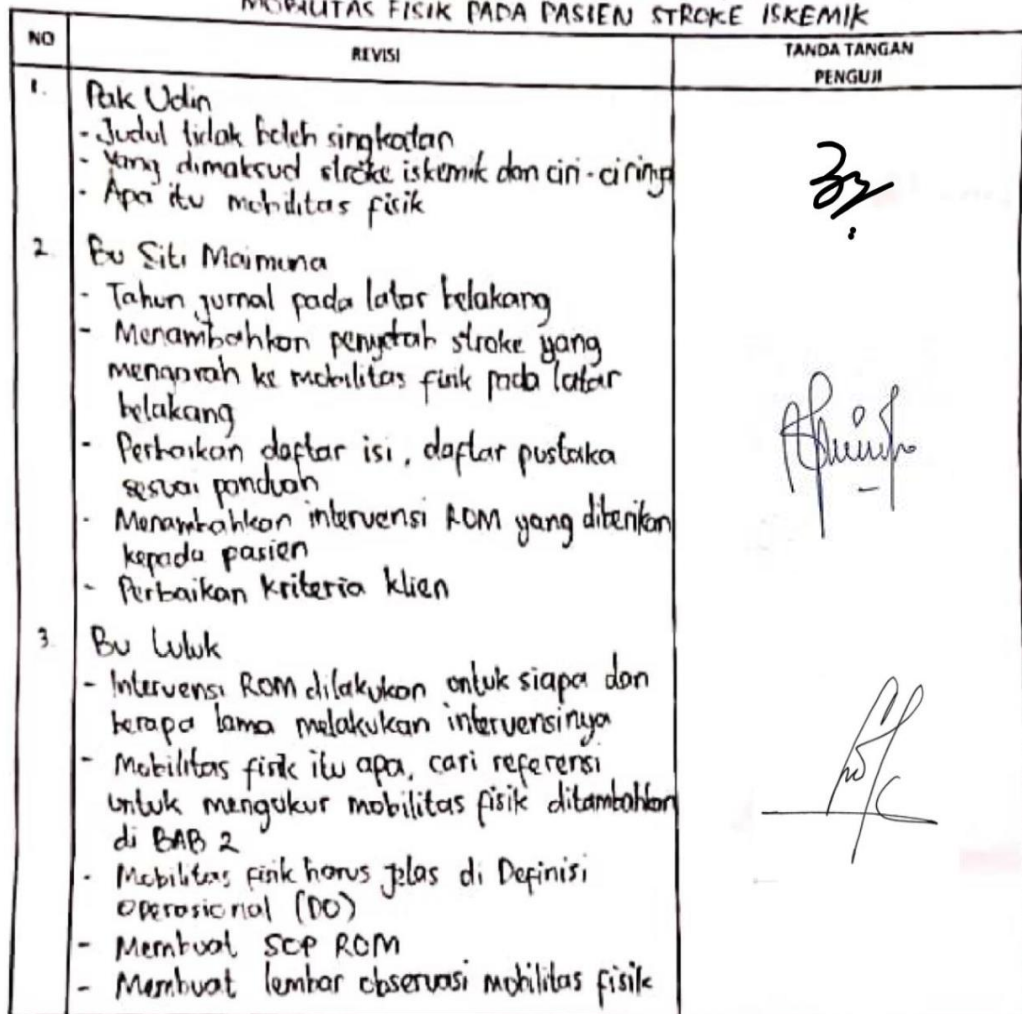 MOBILITAS FISIK PADA PASIEN STROKE ISKEMIK
NO
REVISI
TANDA TANGAN
PENGUJI
1.
Pak Udin
- Judul tidak boleh singkatan
- Yang dimaksud stroke iskemik dan ciri-cirinya
- Apa itu mobilitas fisik
2
Bu Siti Maimuna
- Tahun jurnal pada latar belakang
- Menambahkan penyebab stroke yang
mengarah ke mobilitas fisik pada latar
belakang
- Perbaikan daftar isi, daftar pustaka
sesuai panduan
- Menambahkan intervensi ROM yang diberikan
kepada pasien
- Perbaikan kriteria klien
3.
Bu Luluk
- Intervensi ROM dilakukan untuk siapa dan
berapa lama melakukan intervensinya
- Mobilitas fisik itu apa, cari referensi
untuk mengukur mobilitas fisik ditambahkan
di BAB 2
- Mobilitas fisik harus jelas di Definisi
Operasional (DO)
- Membuat SOP ROM
- Membuat lembar observasi mobilitas fisik